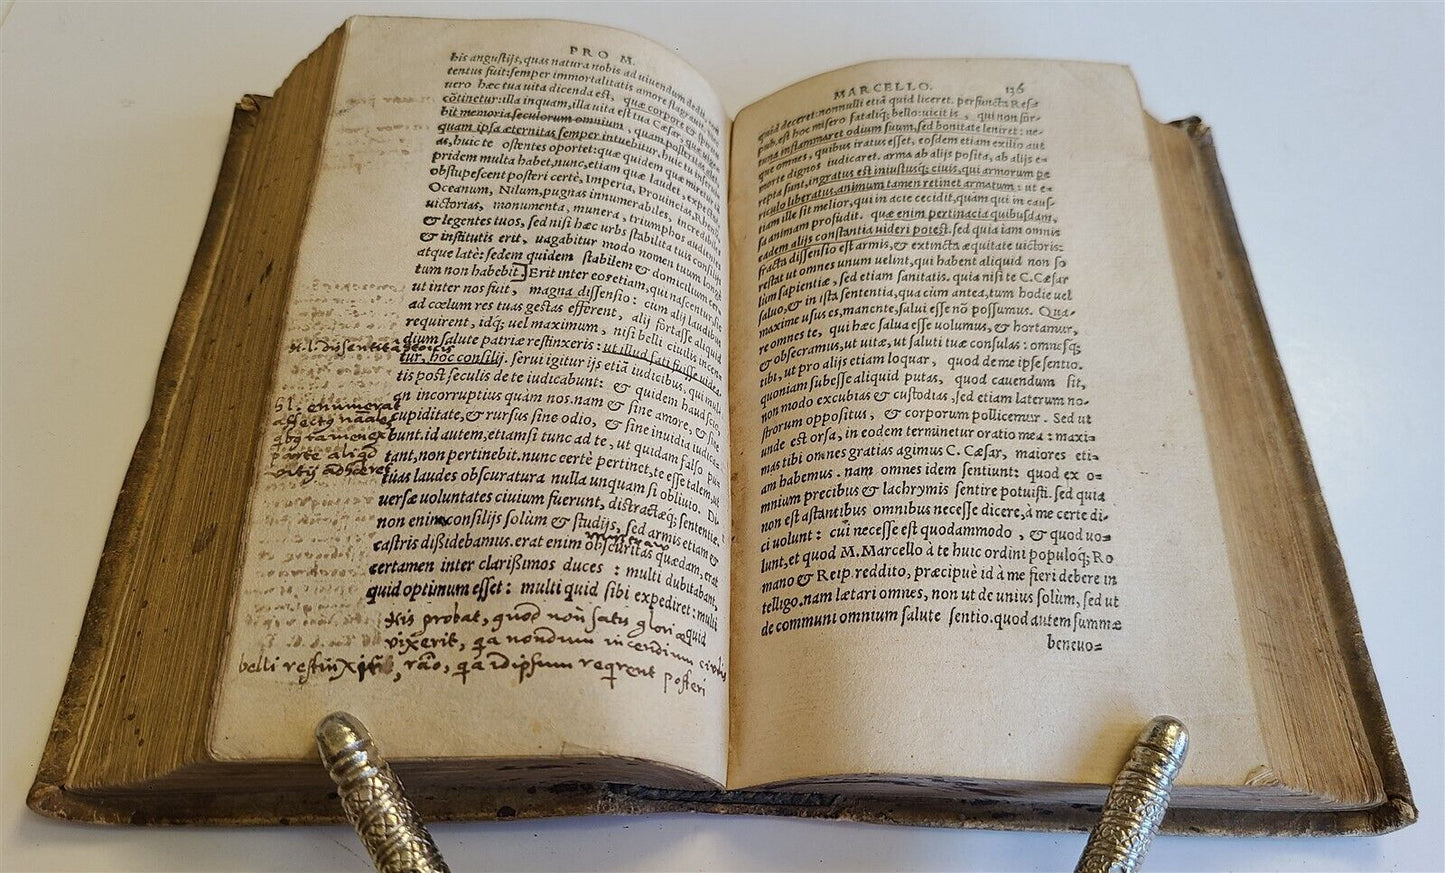 PRO M.
bis angustijs, quas natura nobis ad uiuendum dedit,
tentus fuit: semper immortalitatis amore flagrauit.
uero hæc tua uita dicenda est, quæ corpore &
cõtinetur: illa inquam, illa uita est tua Cæsar, quæ uige
bit memoria seculorum omnium, quam posteritas alet,
quam ipsa æternitas semper intuebitur, huic tu inseruias
as, huic te ostentes oportet: quæ quidem quæ miretur, iã
pridem multa habet, nunc, etiam quæ laudet, expectat.
obstupescent posteri certè, Imperia, Prouincias, Rhenũ,
Oceanum, Nilum, pugnas innumerabiles, incredibiles
uictorias, monumenta, munera, triumphos audientes
& legentes tuos, sed nisi hæc urbs stabilita tuis consilijs
& institutis erit, uagabitur modo nomen tuum longè
atque latè: sedem quidem stabilem & domicilium cer
tum non habebit. Erit inter eos etiam, qui nascentur, sic
ut inter nos fuit, magna dissensio: cùm alij laudibus
ad cœlum res tuas gestas efferent, alij fortasse aliquid
requirent, idq; uel maximum, nisi belli ciuilis incen
dium salute patriæ restinxeris: ut illud fati fuisse uidea
tur, hoc consilij. serui igitur ijs etiã iudicibus, qui mul
tis post seculis de te iudicabunt: & quidem haud scio,
an incorruptius quàm nos. nam & sine amore, & sine
cupiditate, & rursus sine odio, & sine inuidia iudica
bunt. id autem, etiamsi tunc ad te, ut quidam falso pu
tant, non pertinebit. nunc certè pertinet, te esse talem, ut
tuas laudes obscuratura nulla unquam sit obliuio. Di
uersæ uoluntates ciuium fuerunt, distractæq; sententiæ.
non enim consilijs solùm & studijs, sed armis etiam &
castris dißidebamus. erat enim obscuritas quædam, erat
certamen inter clarißimos duces: multi dubitabant,
quid optimum esset: multi quid sibi expediret: multi
sl. enumerat
affectus
parte aliqd
vitij adhæret
probat, quod non satis gloriæ
vixerit, qa nondum incendium civilis
belli restinxit, rão, qa idipsum reqrent posteri
MARCELLO. 136
quid deceret: nonnulli etiã quid liceret. perfuncta Resp
pub. est hoc misero fataliq; bello: uicit is, qui non for-
tuna inflammaret odium suum, sed bonitate leniret: ne-
que omnes, quibus iratus esset, eosdem etiam exilio aut
morte dignos iudicaret. arma ab alijs posita, ab alijs e-
repta sunt, ingratus est iniustusq; ciuis, qui armorum pe
riculo liberatus, animum tamen retinet armatum: ut e-
tiam ille sit melior, qui in acie cecidit, quàm qui in caus-
sa animam profudit. quæ enim pertinacia quibusdam,
eadem alijs constantia uideri potest. sed quia iam omnis
fracta dissensio est armis, & extincta æquitate uictoris:
restat ut omnes unum uelint, qui habent aliquid non so
lùm sapientiæ, sed etiam sanitatis. quia nisi te C. Cæsar
saluo, & in ista sententia, qua cùm antea, tum hodie uel
maxime usus es, manente, salui esse nõ possumus. Qua-
re omnes te, qui hæc salua esse uolumus, & hortamur,
& obsecramus, ut uitæ, ut saluti tuæ consulas: omnesq;
tibi, ut pro alijs etiam loquar, quod de me ipse sentio.
quoniam subesse aliquid putas, quod cauendum sit,
non modo excubias & custodias, sed etiam laterum no-
strorum oppositus, & corporum pollicemur. Sed ut
unde est orsa, in eodem terminetur oratio mea: maxi-
mas tibi omnes gratias agimus C. Cæsar, maiores eti-
am habemus. nam omnes idem sentiunt: quod ex o-
mnium precibus & lachrymis sentire potuisti. sed quia
non est astantibus omnibus necesse dicere, à me certe di-
ci uolunt: cui necesse est quodammodo, & quod uo-
lunt, et quod M. Marcello à te huic ordini populoq; Ro
mano & Reip. reddito, præcipuè id à me fieri debere in
telligo. nam lætari omnes, non ut de unius solùm, sed ut
de communi omnium salute sentio. quod autem summæ
beneuo-